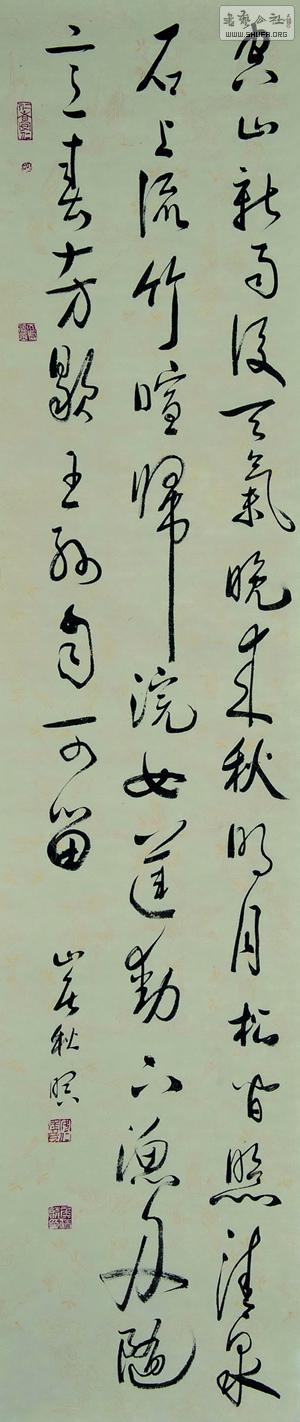 空山新雨後天氣晚來秋明月松間照清泉
石上流竹喧歸浣女蓮動下漁舟隨
意春芳歇王孫自可留
山居秋暝
WWW.SHUFA.ORG